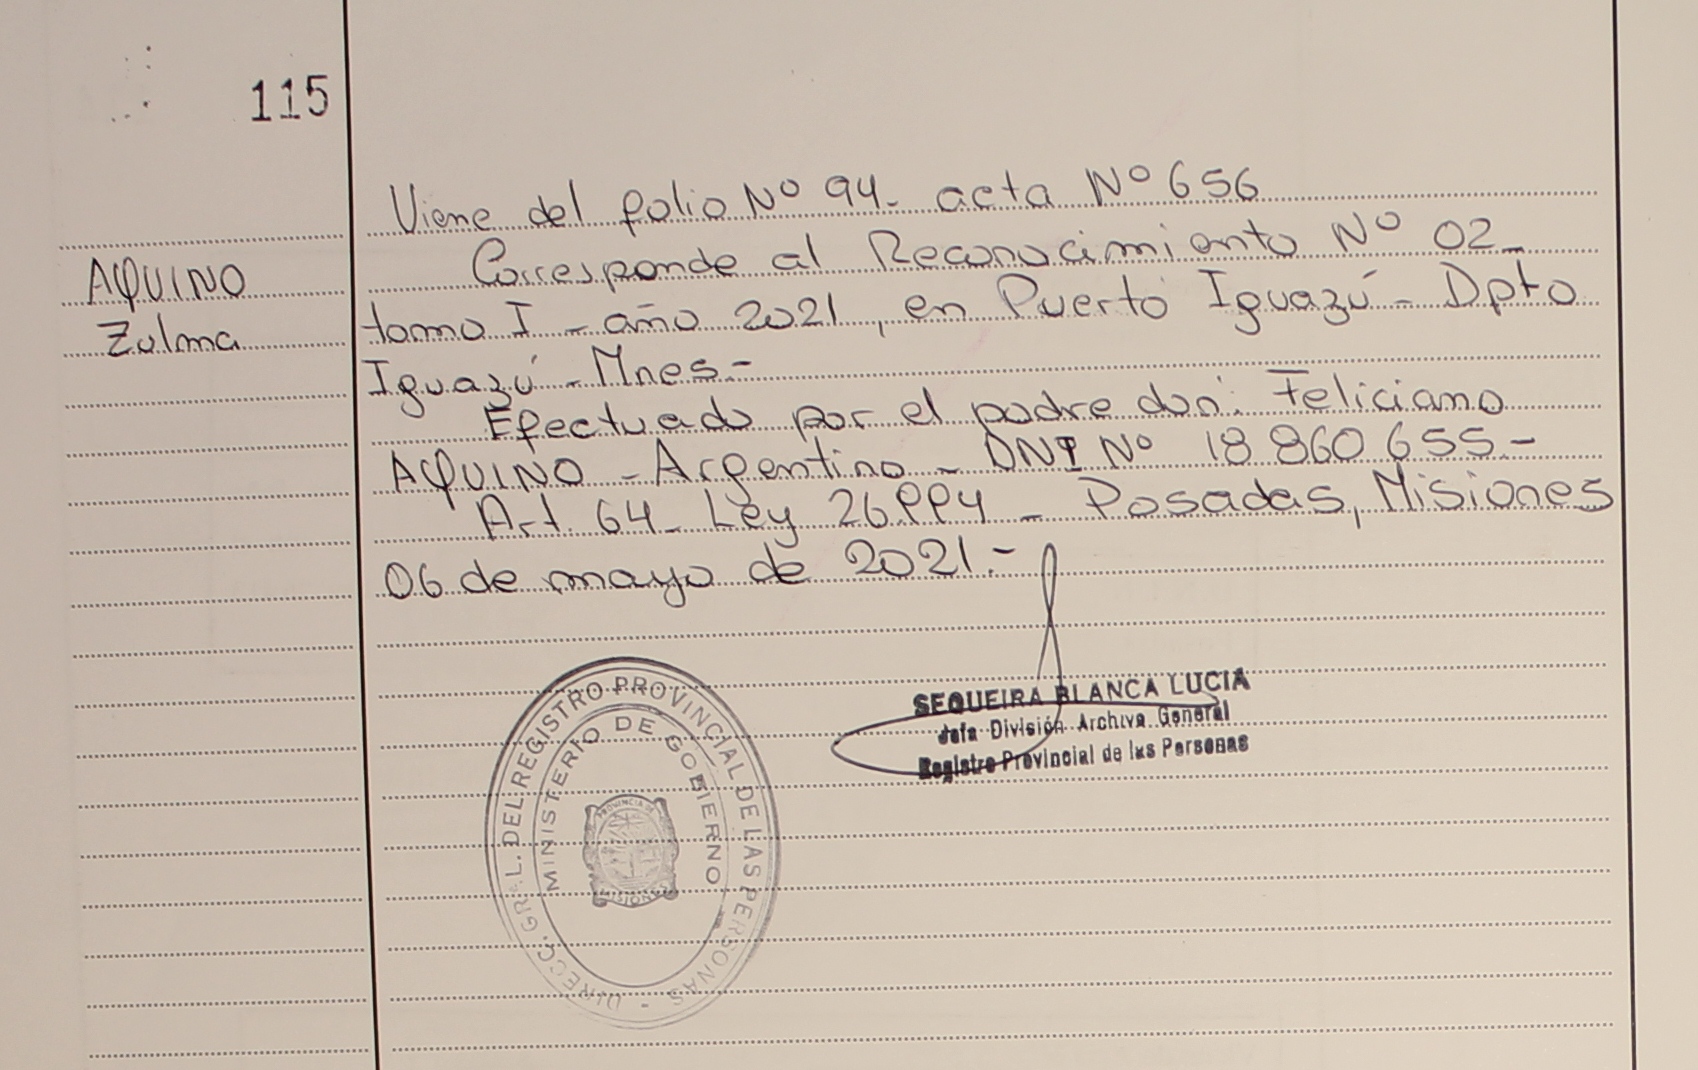 115
Viene del folio Nº 94. acta Nº 656
Corresponde al Reconocimiento Nº 02_
AQUINO
Zulma
tomo I - año 2021, en Puerto Iguazú - Dpto
Iguazú - Mnes.-
Efectuado por el padre don: Feliciano
AQUINO - Argentino - DNI Nº 18 860 655 -
Art. 64 - Ley 26994 - Posadas, Misiones
06 de mayo de 2021.-
SEQUEIRA BLANCA LUCIA
Jefa División Archivo General
Registro Provincial de las Personas
DIRECC. GRAL. DEL REGISTRO PROVINCIAL DE LAS PERSONAS -
MINISTERIO DE GOBIERNO
PROVINCIA DE
MISIONES